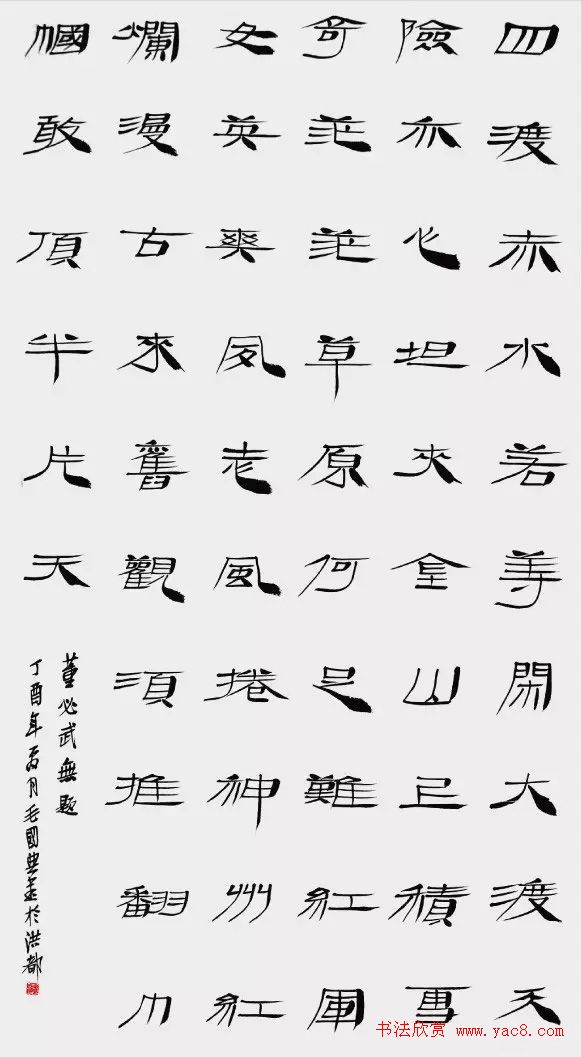 四渡赤水若等閑大渡天
險亦心坦夾金山已積雪
奇茫茫草原何足難紅軍
女英爽夙老風捲神州紅
爛漫古來舊觀須推翻巾
幗敢頂半片天
董必武無題
丁酉年月毛國典於洪都
书法欣赏
www.yac8.com